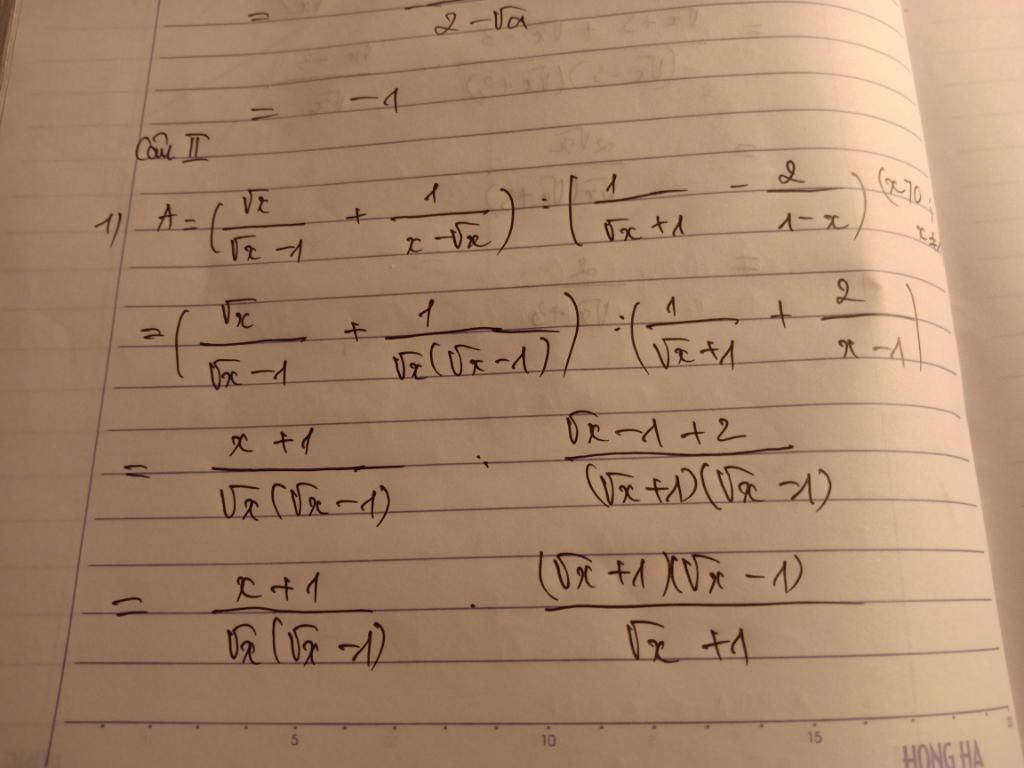 = / (2 - √a)
= -1
Câu II
1) A = (√x/(√x - 1) + 1/(x - √x)) : (1/(√x + 1) - 2/(1 - x)) (x > 0;
= (√x/(√x - 1) + 1/(√x(√x - 1))) : (1/(√x + 1) + 2/(x - 1))
= (x + 1)/(√x(√x - 1)) : (√x - 1 + 2)/((√x + 1)(√x - 1))
= (x + 1)/(√x(√x - 1)) . ((√x + 1)(√x - 1))/(√x + 1)
5 10 15
HONG HA